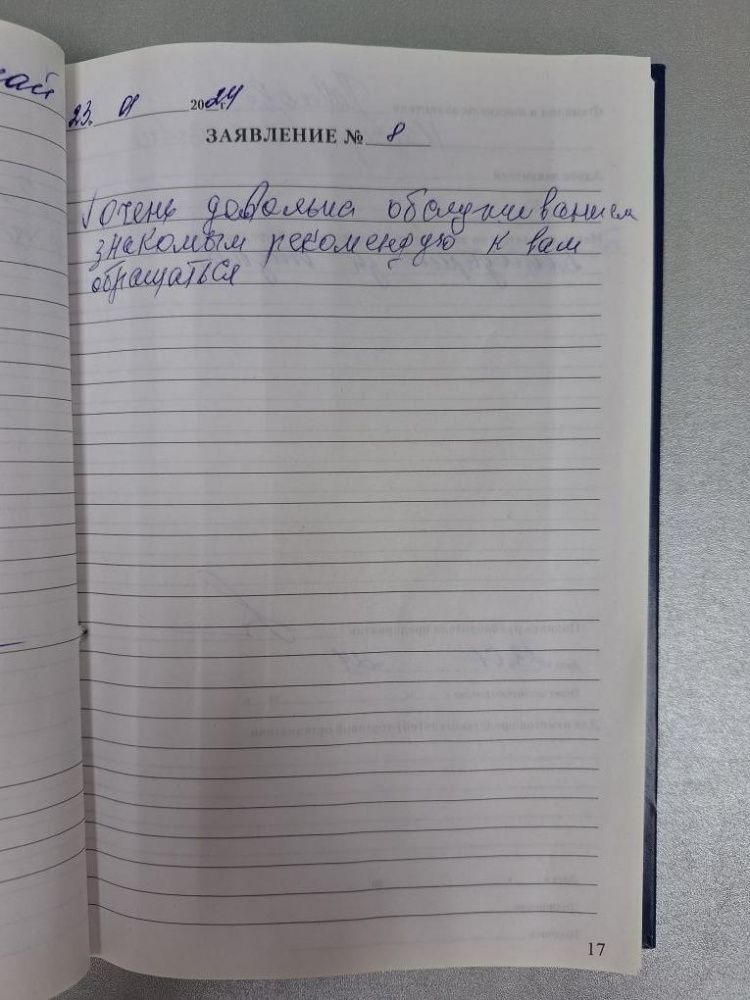 кай
23. 01 2024 г.
ЗАЯВЛЕНИЕ № 8
очень довольна обслуживанием
знакомым рекомендую к вам
обращаться
17